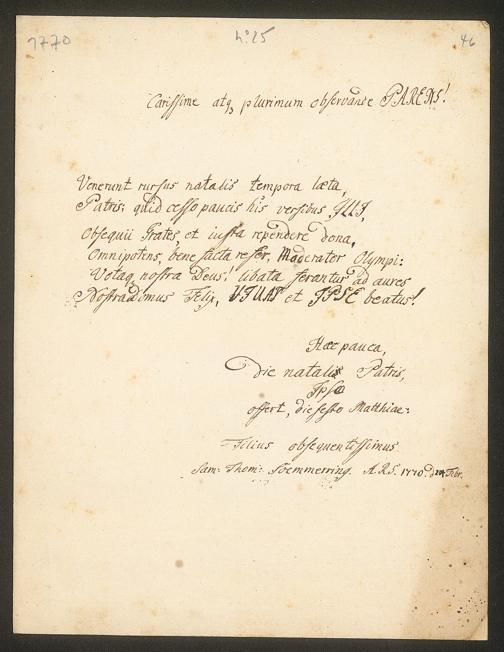 1770
no 25
46
Carissime atq₃ plurimum observande PARENS!
Venerunt rursus natalis tempora læta,
Patris; quid cesso paucis his versibus JLLI,
Obsequii Grates, et iusta rependere dona,
Omnipotens, bene facta refer, Moderator Olympi:
Votaq nostra Deus! libata ferantur ad aures
Nostra domus Felix, VIUAT et JPSE beatus!
Hæc pauca,
die natalis Patris,
Ipso
offert, die festo Matthiae:
Filius obsequentissimus
Sam: Thom: Soemmerring. A.R.S. 1770. d 24 Febr.